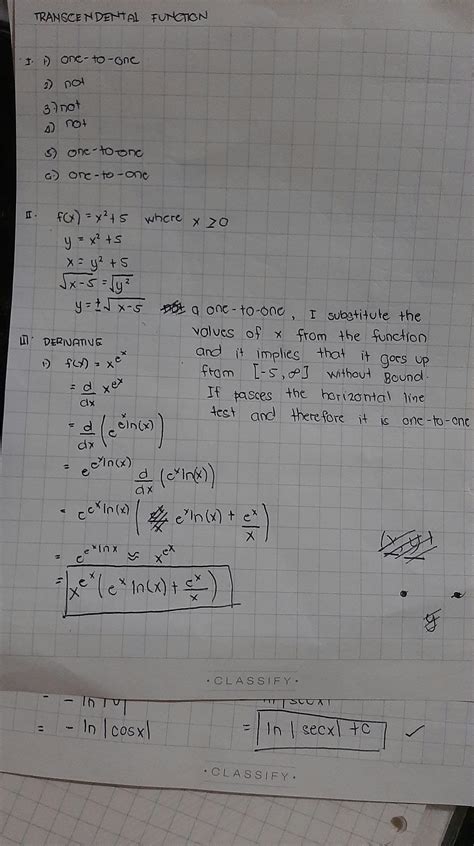 TRANSCENDENTAL FUNCTION
I. 1) one-to-one
2) not
3) not
4) not
5) one-to-one
6) one-to-one
II. f(x) = x² + 5 where x ≥ 0
y = x² + 5
x = y² + 5
√(x-5) = √(y²)
y = ±√(x-5) a one-to-one, I substitute the
values of x from the function
and it implies that it goes up
from [-5, ∞] without Bound.
If passes the horizontal line
test and therefore it is one-to-one
III. DERIVATIVE
1) f(x) = x^(e^x)
= d/dx x^(e^x)
= d/dx (e^(e^x ln(x)))
= e^(e^x ln(x)) d/dx (e^x ln(x))
= e^(e^x ln(x)) (e^x ln(x) + e^x/x)
= e^(e^x ln x) ≈ x^(e^x)
= x^(e^x) (e^x ln(x) + e^x/x)
CLASSIFY
= - ln |cosx|
= ln |secx| + C ✓
CLASSIFY